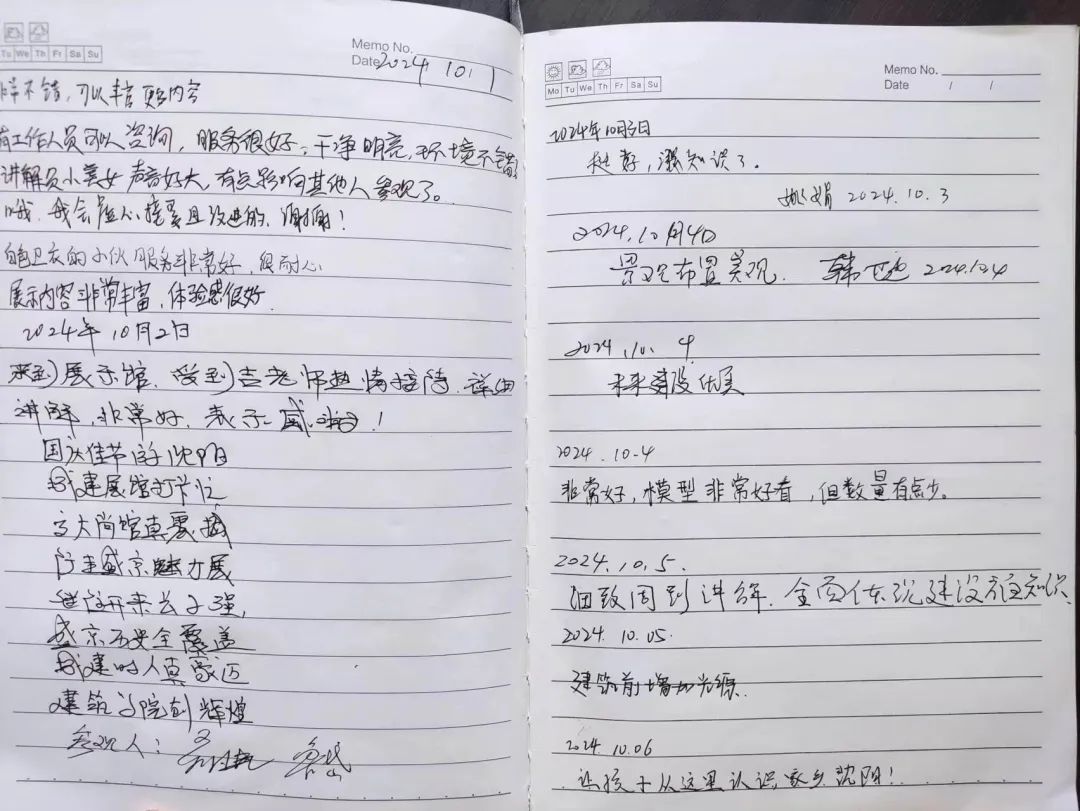 Tu We Th Fr Sa Su
Memo No.
Date 2024 10 1
不错，可以丰富更新内容
有工作人员可以咨询，服务很好，干净明亮，环境不错
讲解员小美女声音好大，有点影响其他人参观了。
哦，我会虚心接受且改进的，谢谢！
白色卫衣的小伙服务非常好，很耐心
展示内容非常丰富，体验感很好
2024年10月2日
来到展示馆，受到吉老师热情接待，详细
讲解，非常好，表示感谢！
国庆佳节游沈阳
城建展馆打卡忙
高大尚馆真震撼
盛京魅力展
继往开来
盛京历史全覆盖
城建时人真豪迈
建筑学院创辉煌
参观人：
Mo Tu We Th Fr Sa Su
Memo No.
Date / /
2024年10月3日
挺好，涨知识了。
姚娟 2024.10.3
2024.10月4日
景观布置美观. 韩 2024.10.4
2024.10. 4
未来建设优美
2024.10-4
非常好，模型非常好看，但数量有点少。
2024.10.5.
细致周到讲解. 全面体现建设方面知识
2024.10.05.
建筑前增加光源.
2024.10.06
让孩子从这里认识家乡沈阳！